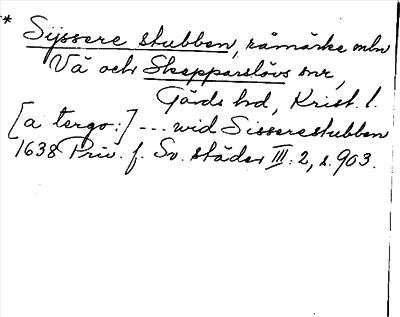 * Sijssere stubben, råmärke mln
Vä och Skepparslövs snr,
Gärds hd, Krist. l.
[a tergo:] --- wid Sisserestubben
1638 Priv. f. Sv. städer III: 2, s. 903.